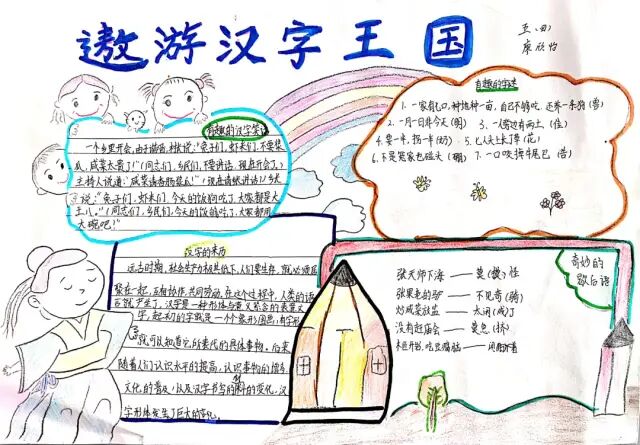 遨游汉字王国
五(四)
康欣怡
有趣的汉字笑话
一个乡里开会,由于谐音,村长说:"兔子们,虾米们,不要酱
瓜,咸菜太贵了!"(同志们,乡民们,不要讲话,现在开会了。)
主持人说道:"咸菜请香肠酱瓜!"(现在请乡长讲话!)乡长
说:"兔子们,虾米们,今天的饭狗吃了,大家都是大
王八。"(同志们,乡民们,今天的饭够吃了,大家都用
大碗吧!)
有趣的字谜
1、一家有七口,种地种一亩,自己不够吃,还养一条狗(兽)
2、一月一日非今天(明) 3、一人旁边有两土(佳)
4、要一半,扔一半(奶) 5、七人头上长了草(花)
6、不是冤家也碰头(硼) 7、一口咬掉牛尾巴(告)
汉字的来历
远古时期,社会生产力极其低下,人们要生存,就必须居
聚在一起,互相协作,共同劳动,在这个过程中,人类的语
言就产生了。汉字是一种形体与意义紧密的表意文
字,起初的字就是一个个象形图画,看字形
就可以知道它所表代的具体事物。后来
随着人们认识水平的提高,认识事物的增多
文化的普及,以及汉字书写的材料的变化,汉
字形体发生了巨大的变化。
奇妙的
歇后语
张天师下海——莫(摸)怪
张果老的驴——不见奇(骑)
炒咸菜放盐——太闲(咸)了
没有赶庙会——黄色(挤)